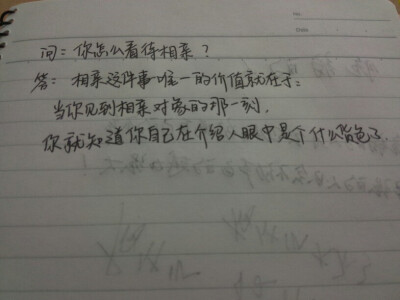 问：你怎么看待相亲？
答：相亲这件事唯一的价值就在于：
当你见到相亲对象的那一刻，
你就知道你自己在介绍人眼中是个什么货色了